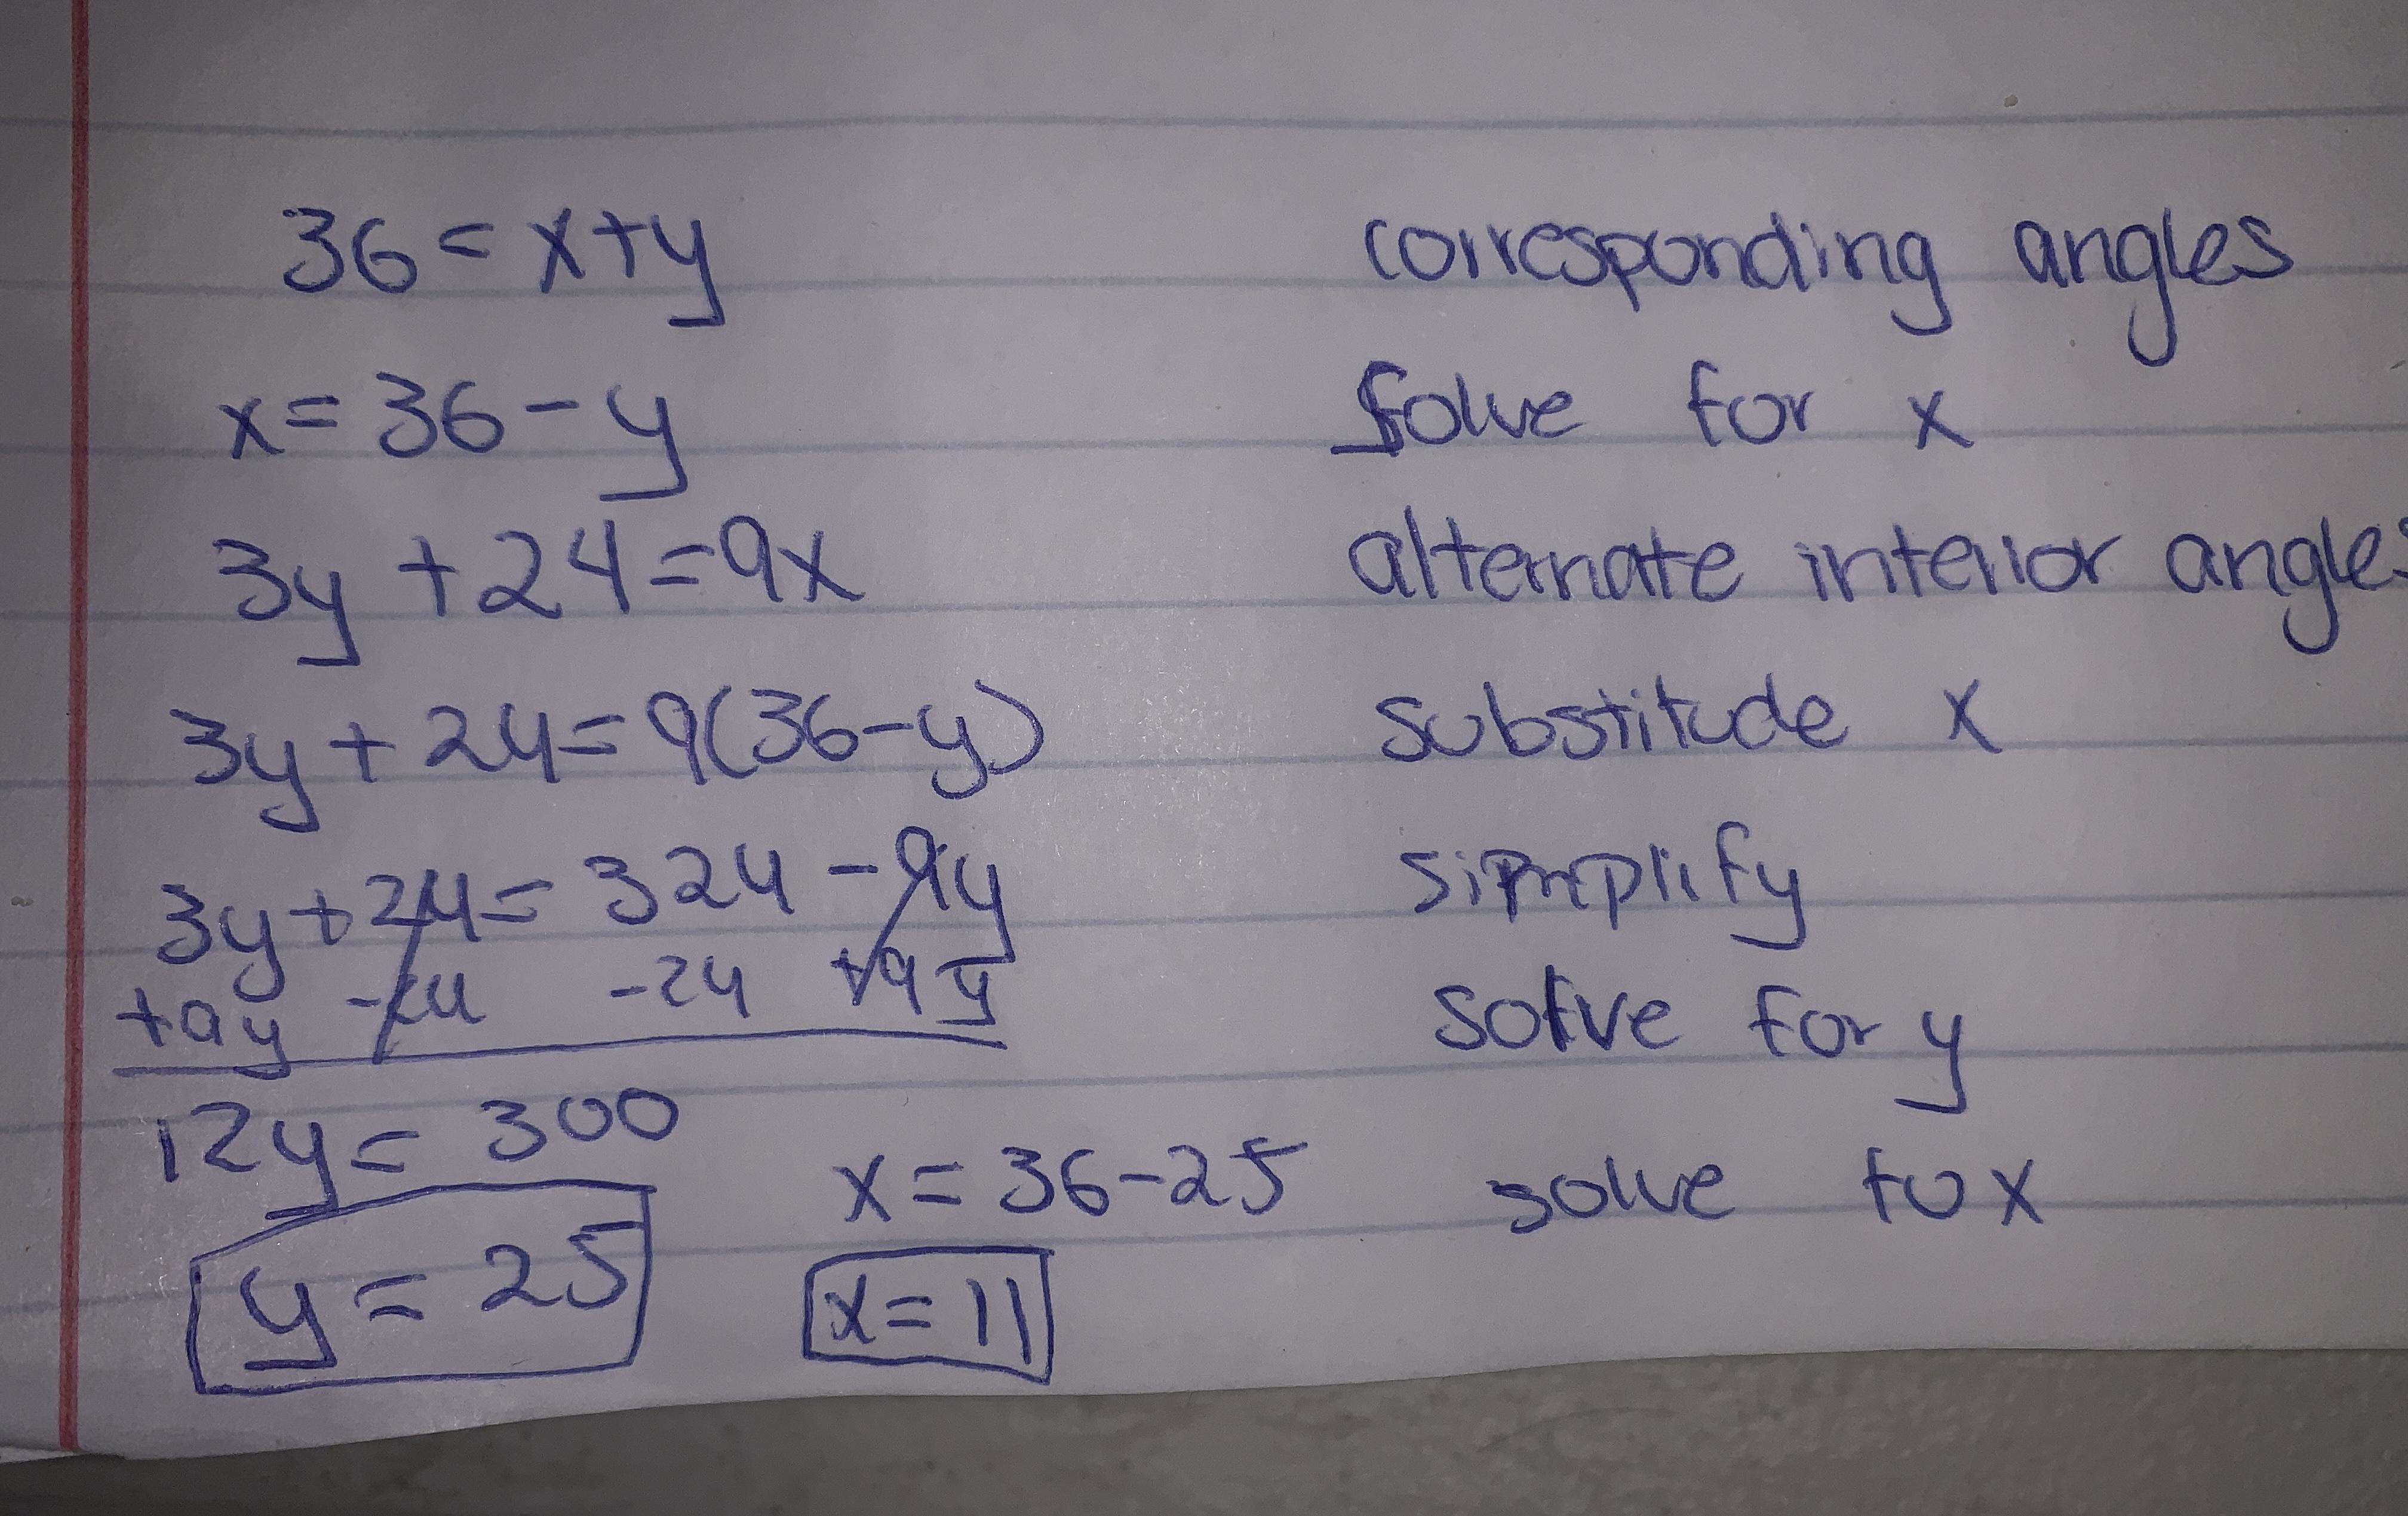 36 = x+y corresponding angles
x = 36 - y solve for x
3y + 24 = 9x alternate interior angles
3y + 24 = 9(36-y) substitude x
3y + 24 = 324 - 9y simplify
+9y -24 -24 +9y solve for y
12y = 300
x = 36-25 solve fo x
y = 25 x = 11